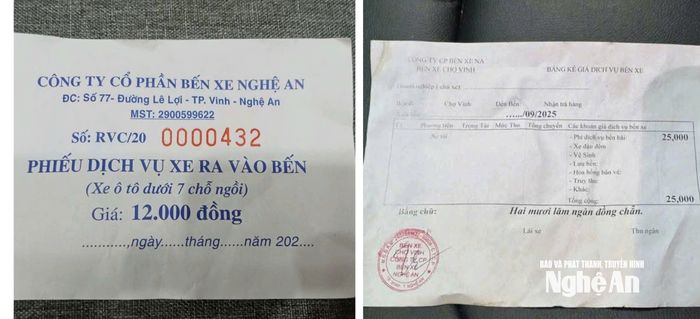 CÔNG TY CỔ PHẦN BẾN XE NGHỆ AN
ĐC: Số 77- Đường Lê Lợi - TP. Vinh - Nghệ An
MST: 2900599622
Số: RVC/20 0000432
PHIẾU DỊCH VỤ XE RA VÀO BẾN
(Xe ô tô dưới 7 chỗ ngồi)
Giá: 12.000 đồng
............,ngày......tháng......năm 202....
CÔNG TY CP BẾN XE NA
BẾN XE CHỢ VINH
BẢNG KÊ GIÁ DỊCH VỤ BẾN XE
Doanh nghiệp ( chủ xe):
Chợ Vinh Đến Bến: Nhận trả hàng
......./09/2025
Phương tiện Trọng Tải Mức Thu Tổng chuyến Các khoản giá dịch vụ bến xe
Xe tải
- Phí dịch vụ bến bãi: 25,000
- Xe đậu đêm
- Vệ Sinh
- Lưu bến:
- Hoa hồng bán vé:
- Truy thu:
- Khác:
Tổng cộng: 25,000
Bằng chữ: Hai mươi lăm ngàn đồng chẵn.
Lái xe Thu ngân
BẾN XE
CHỢ VINH
CÔNG TY CP
BẾN XE
NGHỆ AN
BÁO VÀ PHÁT THANH, TRUYỀN HÌNH
Nghệ An